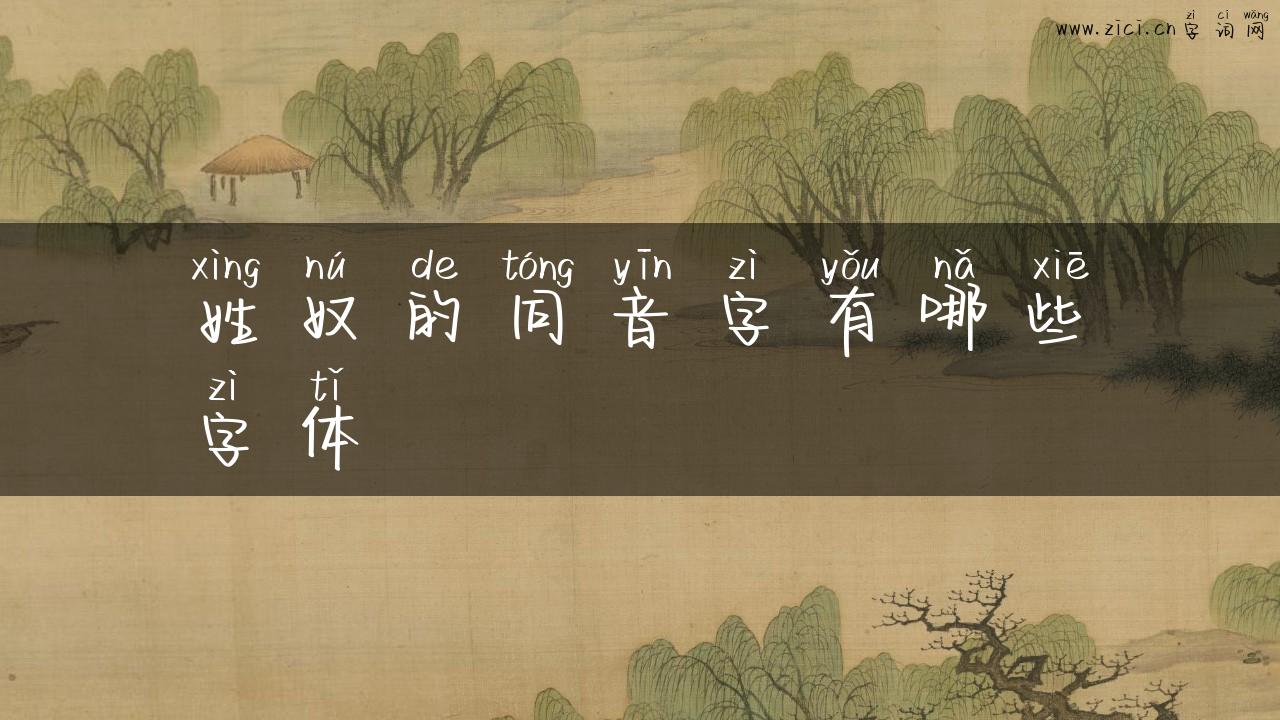 zì cí wǎng
www.zici.cn 字 词 网
xìng nú de tóng yīn zì yǒu nǎ xiē
姓 奴 的 同 音 字 有 哪 些
zì tǐ
字 体